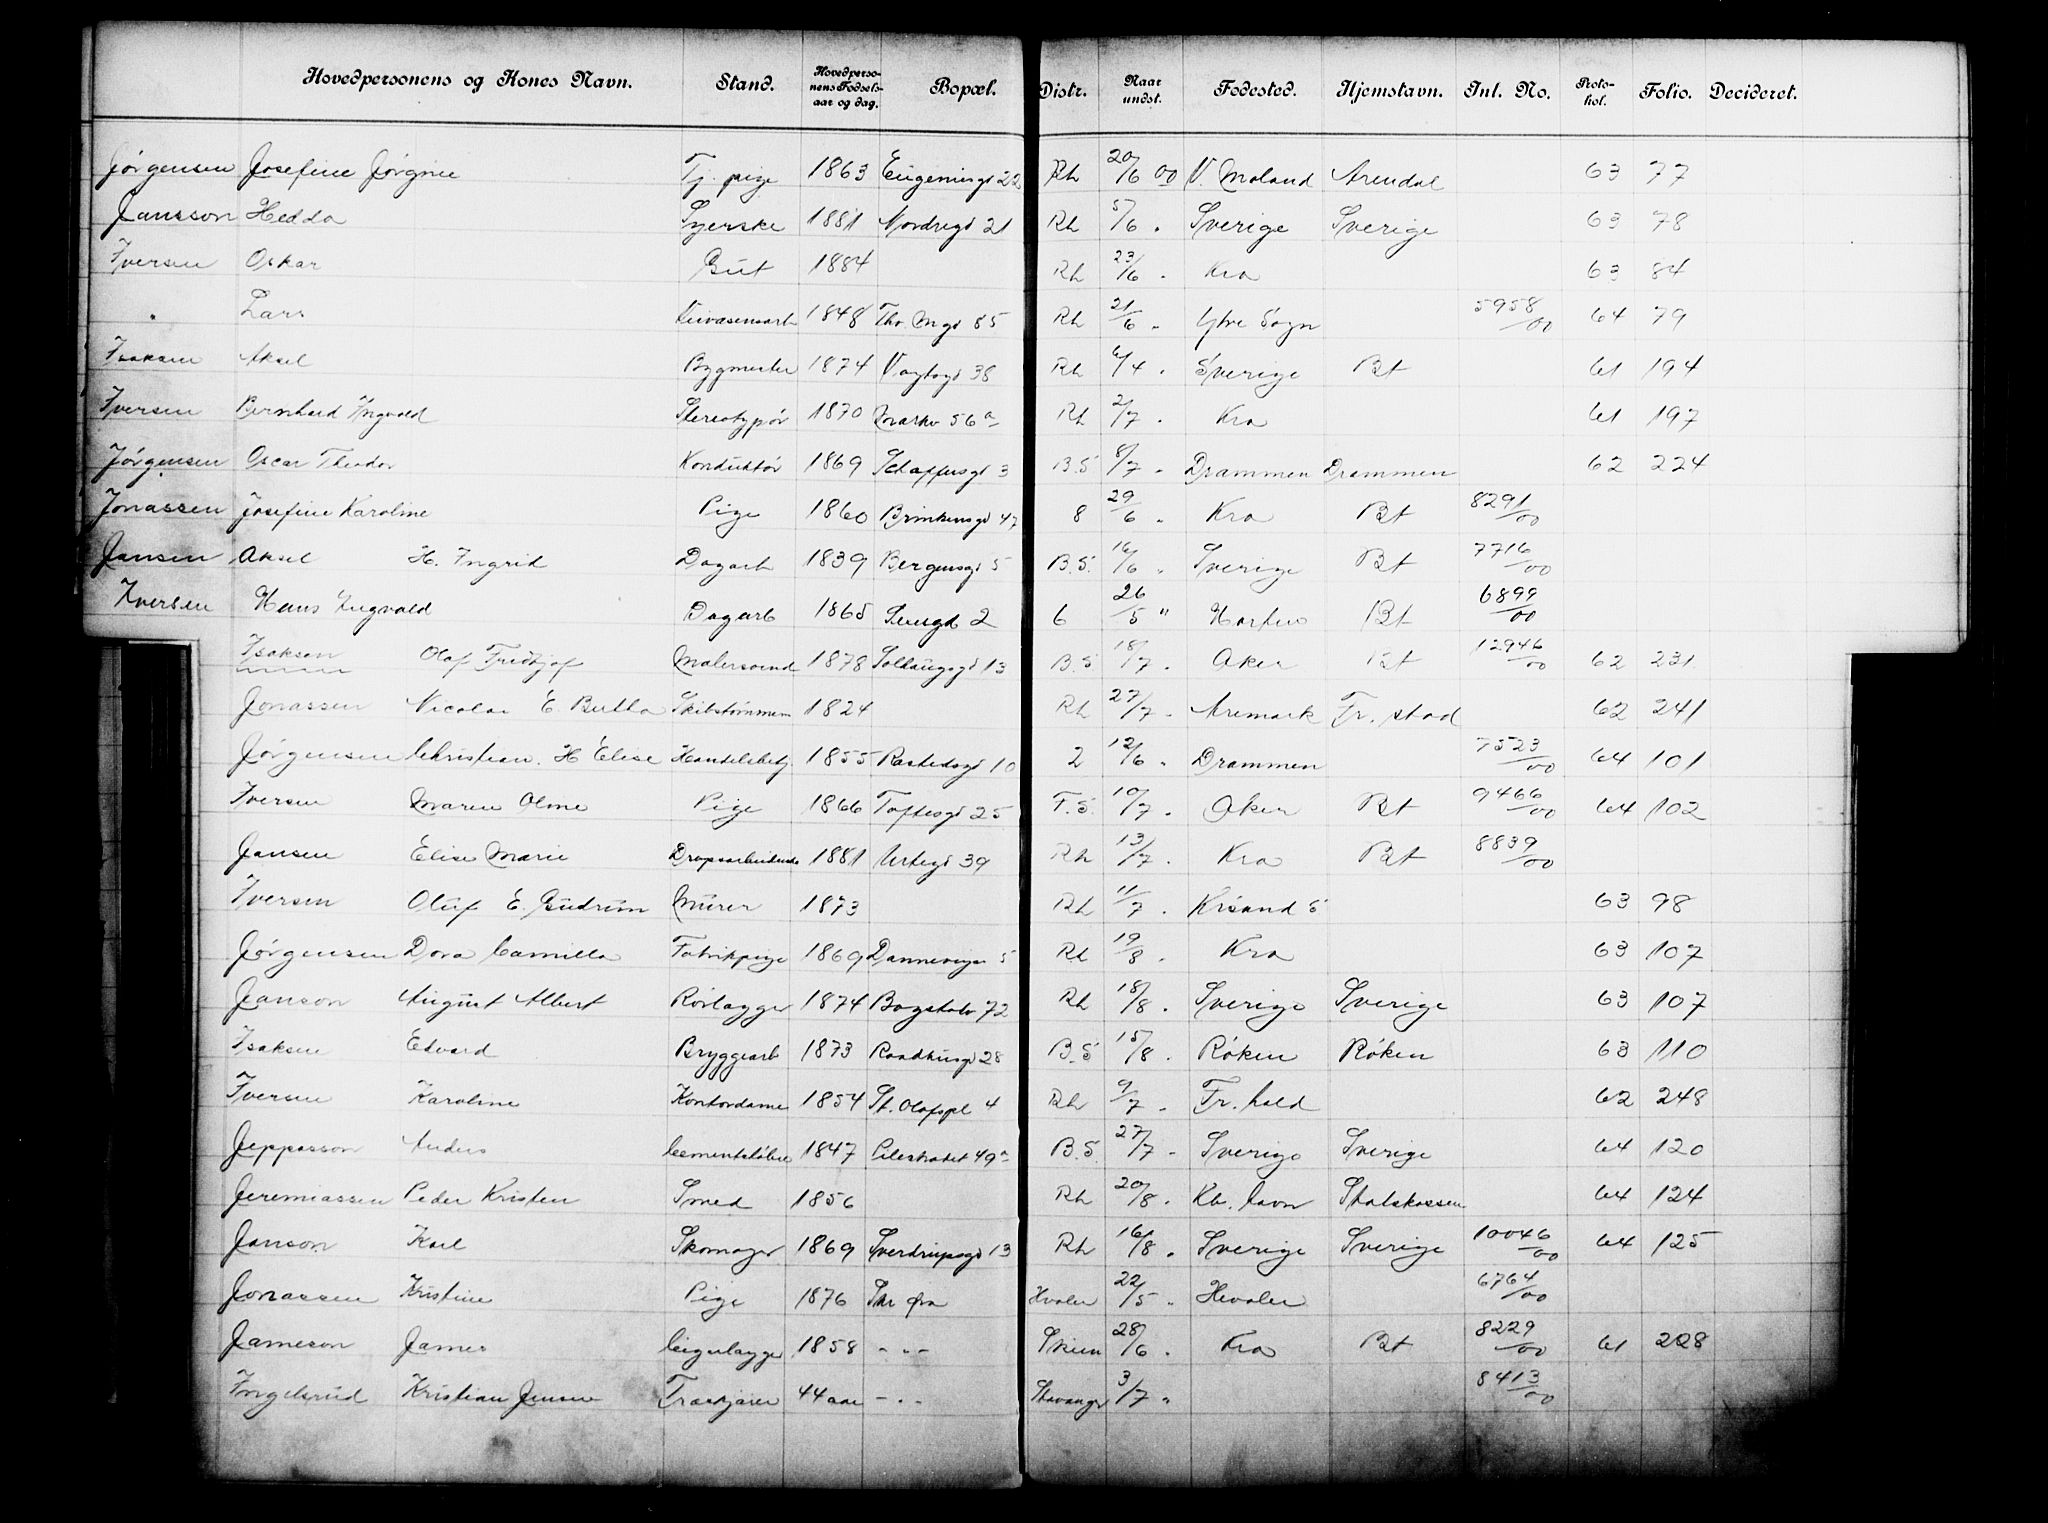 Hovedpersonens og Kones Navn. Stand. Hovedpersonens Fødselsaar og dag. Bopæl. Distr. Naar undst. Fødested. Hjemstavn. Inl. No. Protokol. Folio. Decideret.
Jørgensen Josefine Jørgine Tj. pige 1863 Eugeniesgd 22 Rh 20/6 00 V. Moland Arendal 63 77
Jansson Hedda Syerske 1881 Nordregd 21 Rh 5/6 " Sverige Sverige 63 78
Iversen Oskar Gut 1884 Rh 23/6 " Kra 63 84
" Lars 1848 Thv. Mgd 85 Rh 21/6 " Ytre Sogn 5958/00 64 79
Isaksen Aksel Bygmester 1874 Vogtsgd 38 Rh 6/4 " Sverige Bt 61 194
Iversen Bernhard Ingvald Stereotypør 1870 Markv 56a Rh 2/7 " Kra 61 197
Jørgensen Oscar Theodor Konduktør 1869 3 B.S. 8/7 " Drammen Drammen 62 224
Jonassen Josefine Karoline Pige 1860 Brinkensgd 47 8 29/6 " Kra Bt 8291/00
Jansen Aksel H. Ingrid Dagarb 1839 Bergensgd 5 B.S. 16/6 " Sverige Bt 7716/00
Iversen Hans Ingvald Dagarb 1865 2 6 26/5 " Horten Bt 6899/00
Isaksen Olaf Fridtjof Malersvend 1878 13 B.S 18/7 " Aker Bt 12946/00 62 231
Jonassen Nicolai E. Bertha Skibstømmerm 1824 Rh 27/7 " Aremark Fr. stad 62 241
Jørgensen Christian. H Elise Handelsbetj 1855 Rostedsgd 10 2 12/6 " Drammen 7523/00 64 101
Iversen Maren Oline Pige 1866 Toftesgd 25 F.S. 10/7 " Aker Bt 9466/00 64 102
Jansen Elise Marie 1881 Urtegd 39 Rh 13/7 " Kra Bt 8839/00
Iversen Oluf E. Gudrun Murer 1873 Rh 11/7 " Krsand S 63 98
Jørgensen Dora Camilla Fabrikpige 1869 Dannevigsv 5 Rh 19/8 " Kra 63 107
Janson August Albert Rørlægger 1874 Bogstadv 72 Rh 18/8 " Sverige Sverige 63 107
Isaksen Edvard Bryggearb 1873 Raadhusgd 28 B.S 15/8 " Røken Røken 63 110
Iversen Karoline Kontordame 1854 St. Olafspl 4 Rh 9/7 " Fr. hald 62 248
Jeppesson Anders Cementstøber 1847 Pilestrædet 49a B.S. 27/7 " Sverige Sverige 64 120
Jeremiassen Peder Kristen Smed 1856 Rh 20/8 " Kb. havn Statskassen 64 124
Janson Karl Skomager 1869 Sverdrupsgd 13 Rh 16/8 " Sverige Sverige 10046/00 64 125
Jonassen Kristine Pige 1876 Skr fra Hvaler 22/5 " Hvaler 6764/00
Jameson James Cigarlægger 1858 - " - Skien 28/6 " Kra Bt 8229/00 61 208
Ingelsrud Kristian Jensen Træskjærer 44 aar - " - Stavanger 3/7 " 8413/00